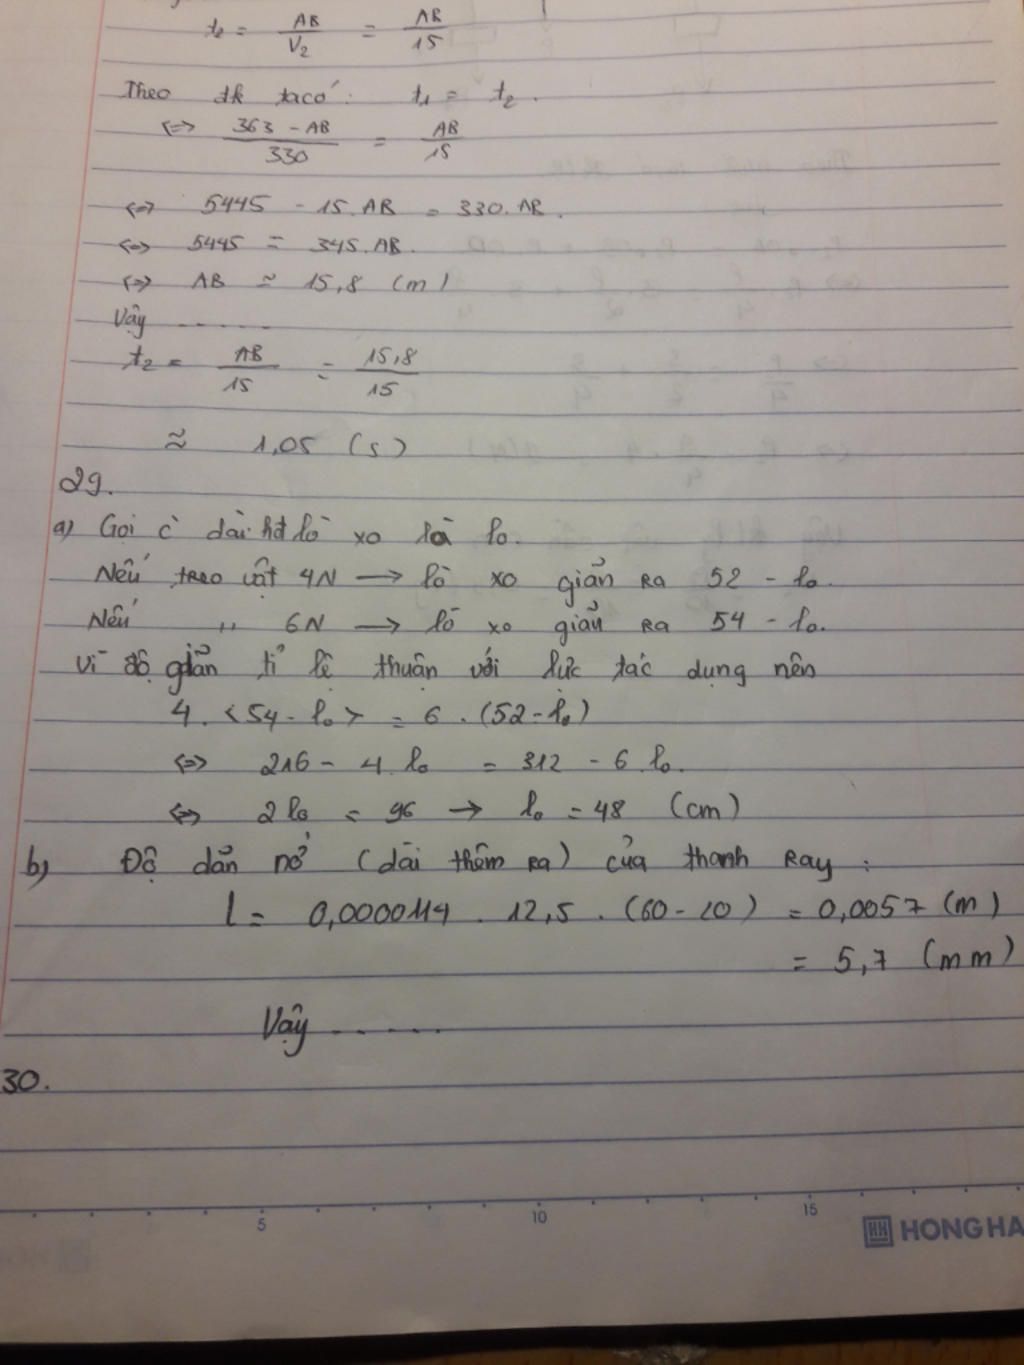 t₂ = AB/V₂ = AB/15
Theo đk ta có: t₁ = t₂.
⇔ (363 - AB)/330 = AB/15
⇔ 5445 - 15.AB = 330.AB.
⇔ 5445 = 345.AB.
⇔ AB ≈ 15,8 (m)
Vậy ......
t₂ = AB/15 = 15,8/15
≈ 1,05 (s)
29.
a) Gọi c dài lò xo là l₀.
Nếu treo vật 4N → lò xo giãn ra 52 - l₀.
Nếu ,, 6N → lò xo giãn ra 54 - l₀.
Vì độ giãn tỉ lệ thuận với lực tác dụng nên
4. <54 - l₀> = 6 . (52 - l₀)
⇔ 216 - 4 l₀ = 312 - 6 l₀.
⇔ 2 l₀ = 96 → l₀ = 48 (cm)
b) Độ dãn nở (dài thêm ra) của thanh Ray :
l = 0,0000114 . 12,5 . (60 - 20) = 0,0057 (m)
= 5,7 (mm)
Vậy ......
30.
5 10 15
HH HONG HA